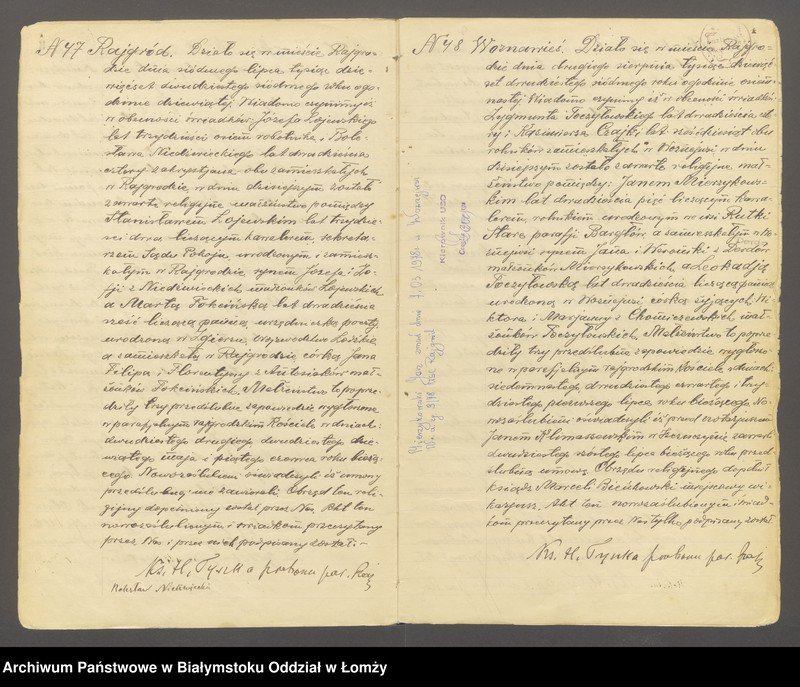 N 47 Rajgród. Działo się w mieście Rajgro-
dzie dnia siódmego lipca tysiąc dzie-
więćset dwudziestego siódmego roku o go-
dzinie dziewiątej. Wiadomo czynimy iż
w obecności świadków Józefa Łojewskiego
lat trzydzieści osiem robotnika i Bole-
sława Niedzwieckiego lat dwadzieścia
cztery zakrystjana obu zamieszkałych
w Rajgrodzie, w dniu dzisiejszym zostało
zawarte religijne małżeństwo pomiędzy
Stanisławem Łojewskim lat trzydzie-
ści dwa liczącym kawalerem, sekreta-
rzem Sądu Pokoju, urodzonym i zamiesz-
kałym w Rajgrodzie synem Józefa i Zo-
fji z Niedzwieckich małżonków Łojewskich
a Martą Fokcińską lat dwadzieścia
sześć liczącą panną urzędniczką poczty
urodzoną w Zgierzu, województwa Łódzkie
a zamieszkałą w Rajgrodzie córką Jana
Filipa i Florentyny z Antosiaków mał-
żonków Fokcińskich. Małżeństwo to poprze-
dziły trzy przedślubne zapowiedzie wygłoszone
w parafjalnym rajgrodzkim Kościele w dniach:
dwudziestego drugiego dwudziestego dzie-
wiątego maja i piątego czerwca roku bieżą-
cego. Nowozaślubieni oświadczyli iż umowy
przedślubnej nie zawierali. Obrzęd ten reli-
gijny dopełniony został przez Nas. Akt ten
nowozaślubionym i świadkom przeczytany
przez Nas i przez nich podpisany został:-
Ks. H. Tyszka proboszcz par. Rajg
Bolesław Niedzwiecki
N 48. Woznawieś. Działo się w mieście Rajgro-
dzie dnia drugiego sierpnia tysiąc dziewięć-
set dwudziestego siódmego roku o godzinie osiem-
nastej. Wiadomo czynimy iż w obecności świadków
Zygmunta Toczyłowskiego lat dwadzieścia czte-
ry i Kazimierza Czajki lat sześćdziesiąt obu
rolników zamieszkałych w Woznejwsi w dniu
dzisiejszym zostało zawarte religijne mał-
żeństwo pomiędzy: Janem Mierzykow-
skim lat dwadzieścia pięć liczącym kawa-
lerem, rolnikiem urodzonym we wsi Rutki
Stare parafji Bargłów a zamieszkałym w Wo-
znejwsi synem Jana i Weroniki z
małżonków Mierzykowskich, a Leokadją
Toczyłowską lat dwadzieścia liczącą panną
urodzoną w Woznejwsi córką żyjących Wi-
ktora i Marjanny z Chomiczewskich mał-
żonków Toczyłowskich. Małżeństwo to poprze-
dziły trzy przedślubne zapowiedzie wygłoszo-
ne w parafjalnym rajgrodzkim Kościele w dniach:
siedemnastego, dwudziestego czwartego i trzy-
dziestego pierwszego lipca roku bieżącego. No-
wozaślubieni oświadczyli iż przed notarjuszem
Janem Klimaszewskim w Szczuczynie zawarli
dwudziestego szóstego lipca bieżącego roku przed-
ślubną umowę. Obrzędu religijnego dopełnił
ksiądz Marceli Bieńkowski miejscowy wi-
karjusz. Akt ten nowozaślubionym i świad-
kom przeczytany przez Nas tylko podpisany został.
Ks. H. Tyszka proboszcz par. Rajg
Mierzykowski Jan zmarł dnia 7.03.1978 w Woznejwsi
Kierownik USC
Archiwum Państwowe w Białymstoku Oddział w Łomży